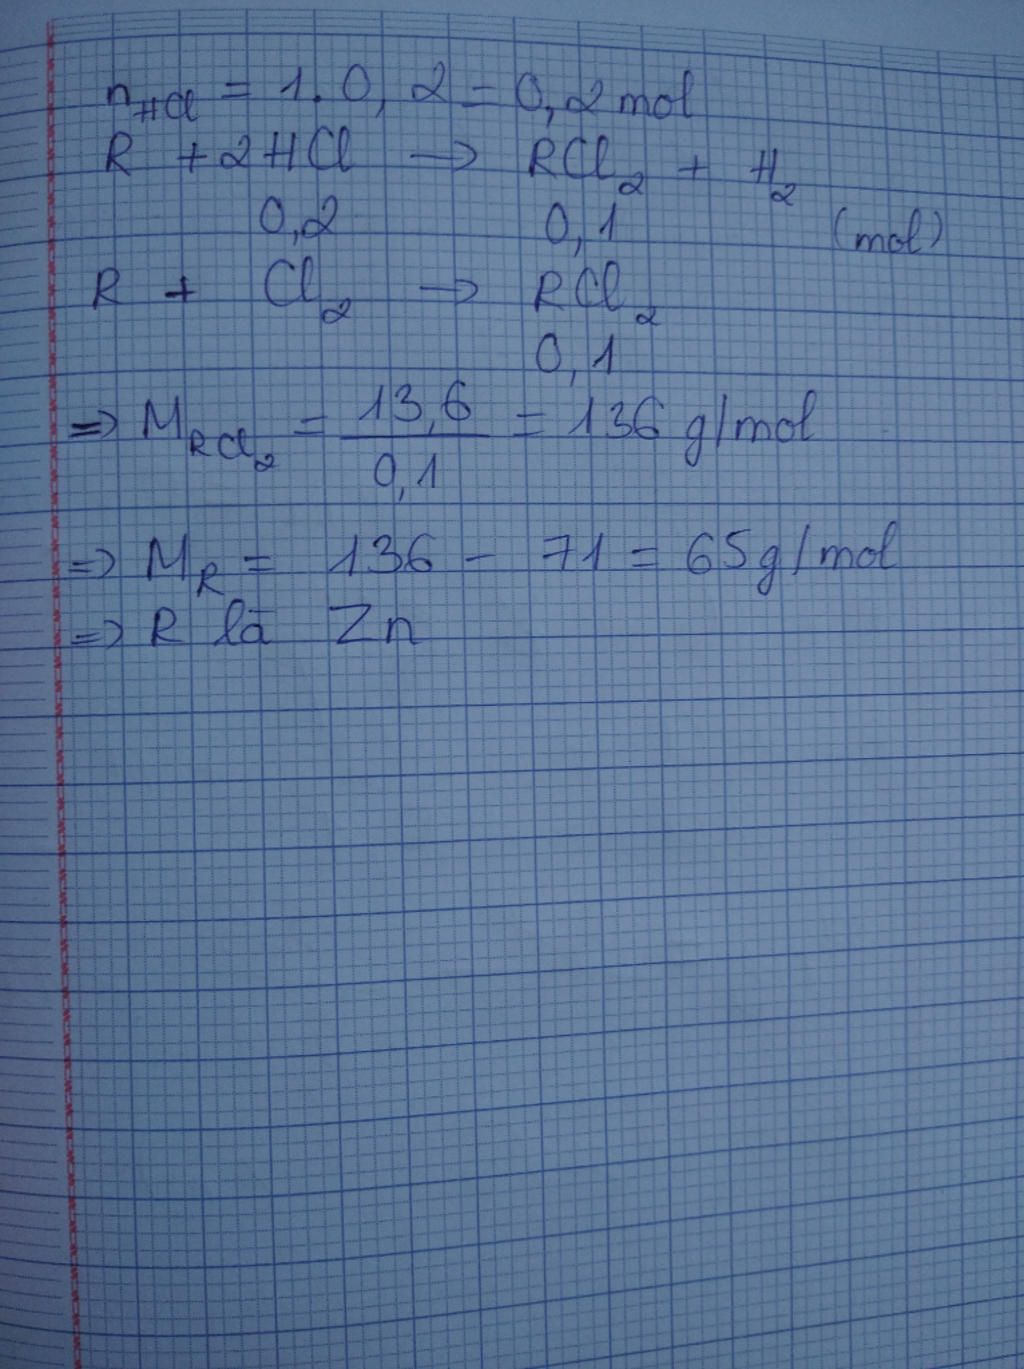 n_HCl = 1.0,2 = 0,2 mol
R + 2HCl → RCl₂ + H₂
0,2 0,1 (mol)
R + Cl₂ → RCl₂
0,1
=> M_RCl₂ = 13,6 / 0,1 = 136 g/mol
=> M_R = 136 - 71 = 65g/mol
=> R là Zn